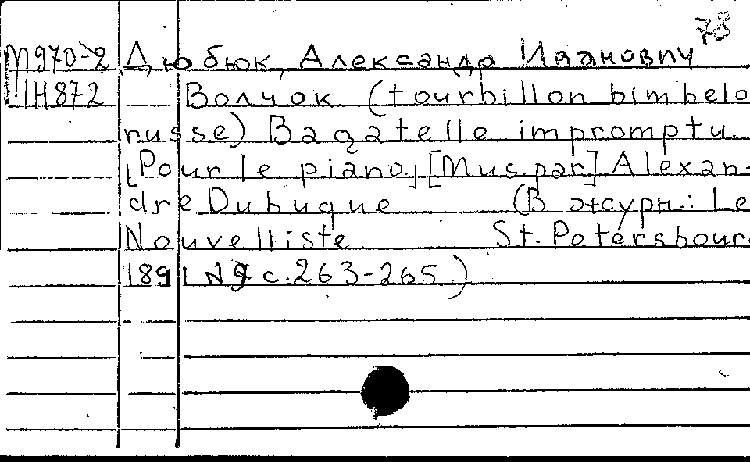 73
М970-2 Дюбюк, Александр Иванович
IН872 Волчок (tourbillon bimbelo
russe) Bagatelle impromptu.
[Pour le piano] [Mus. par] Alexan-
dre Dubuque (В журн.: Le
Nouvelliste St. Petersbourg
1891 №9 с. 263-265.)